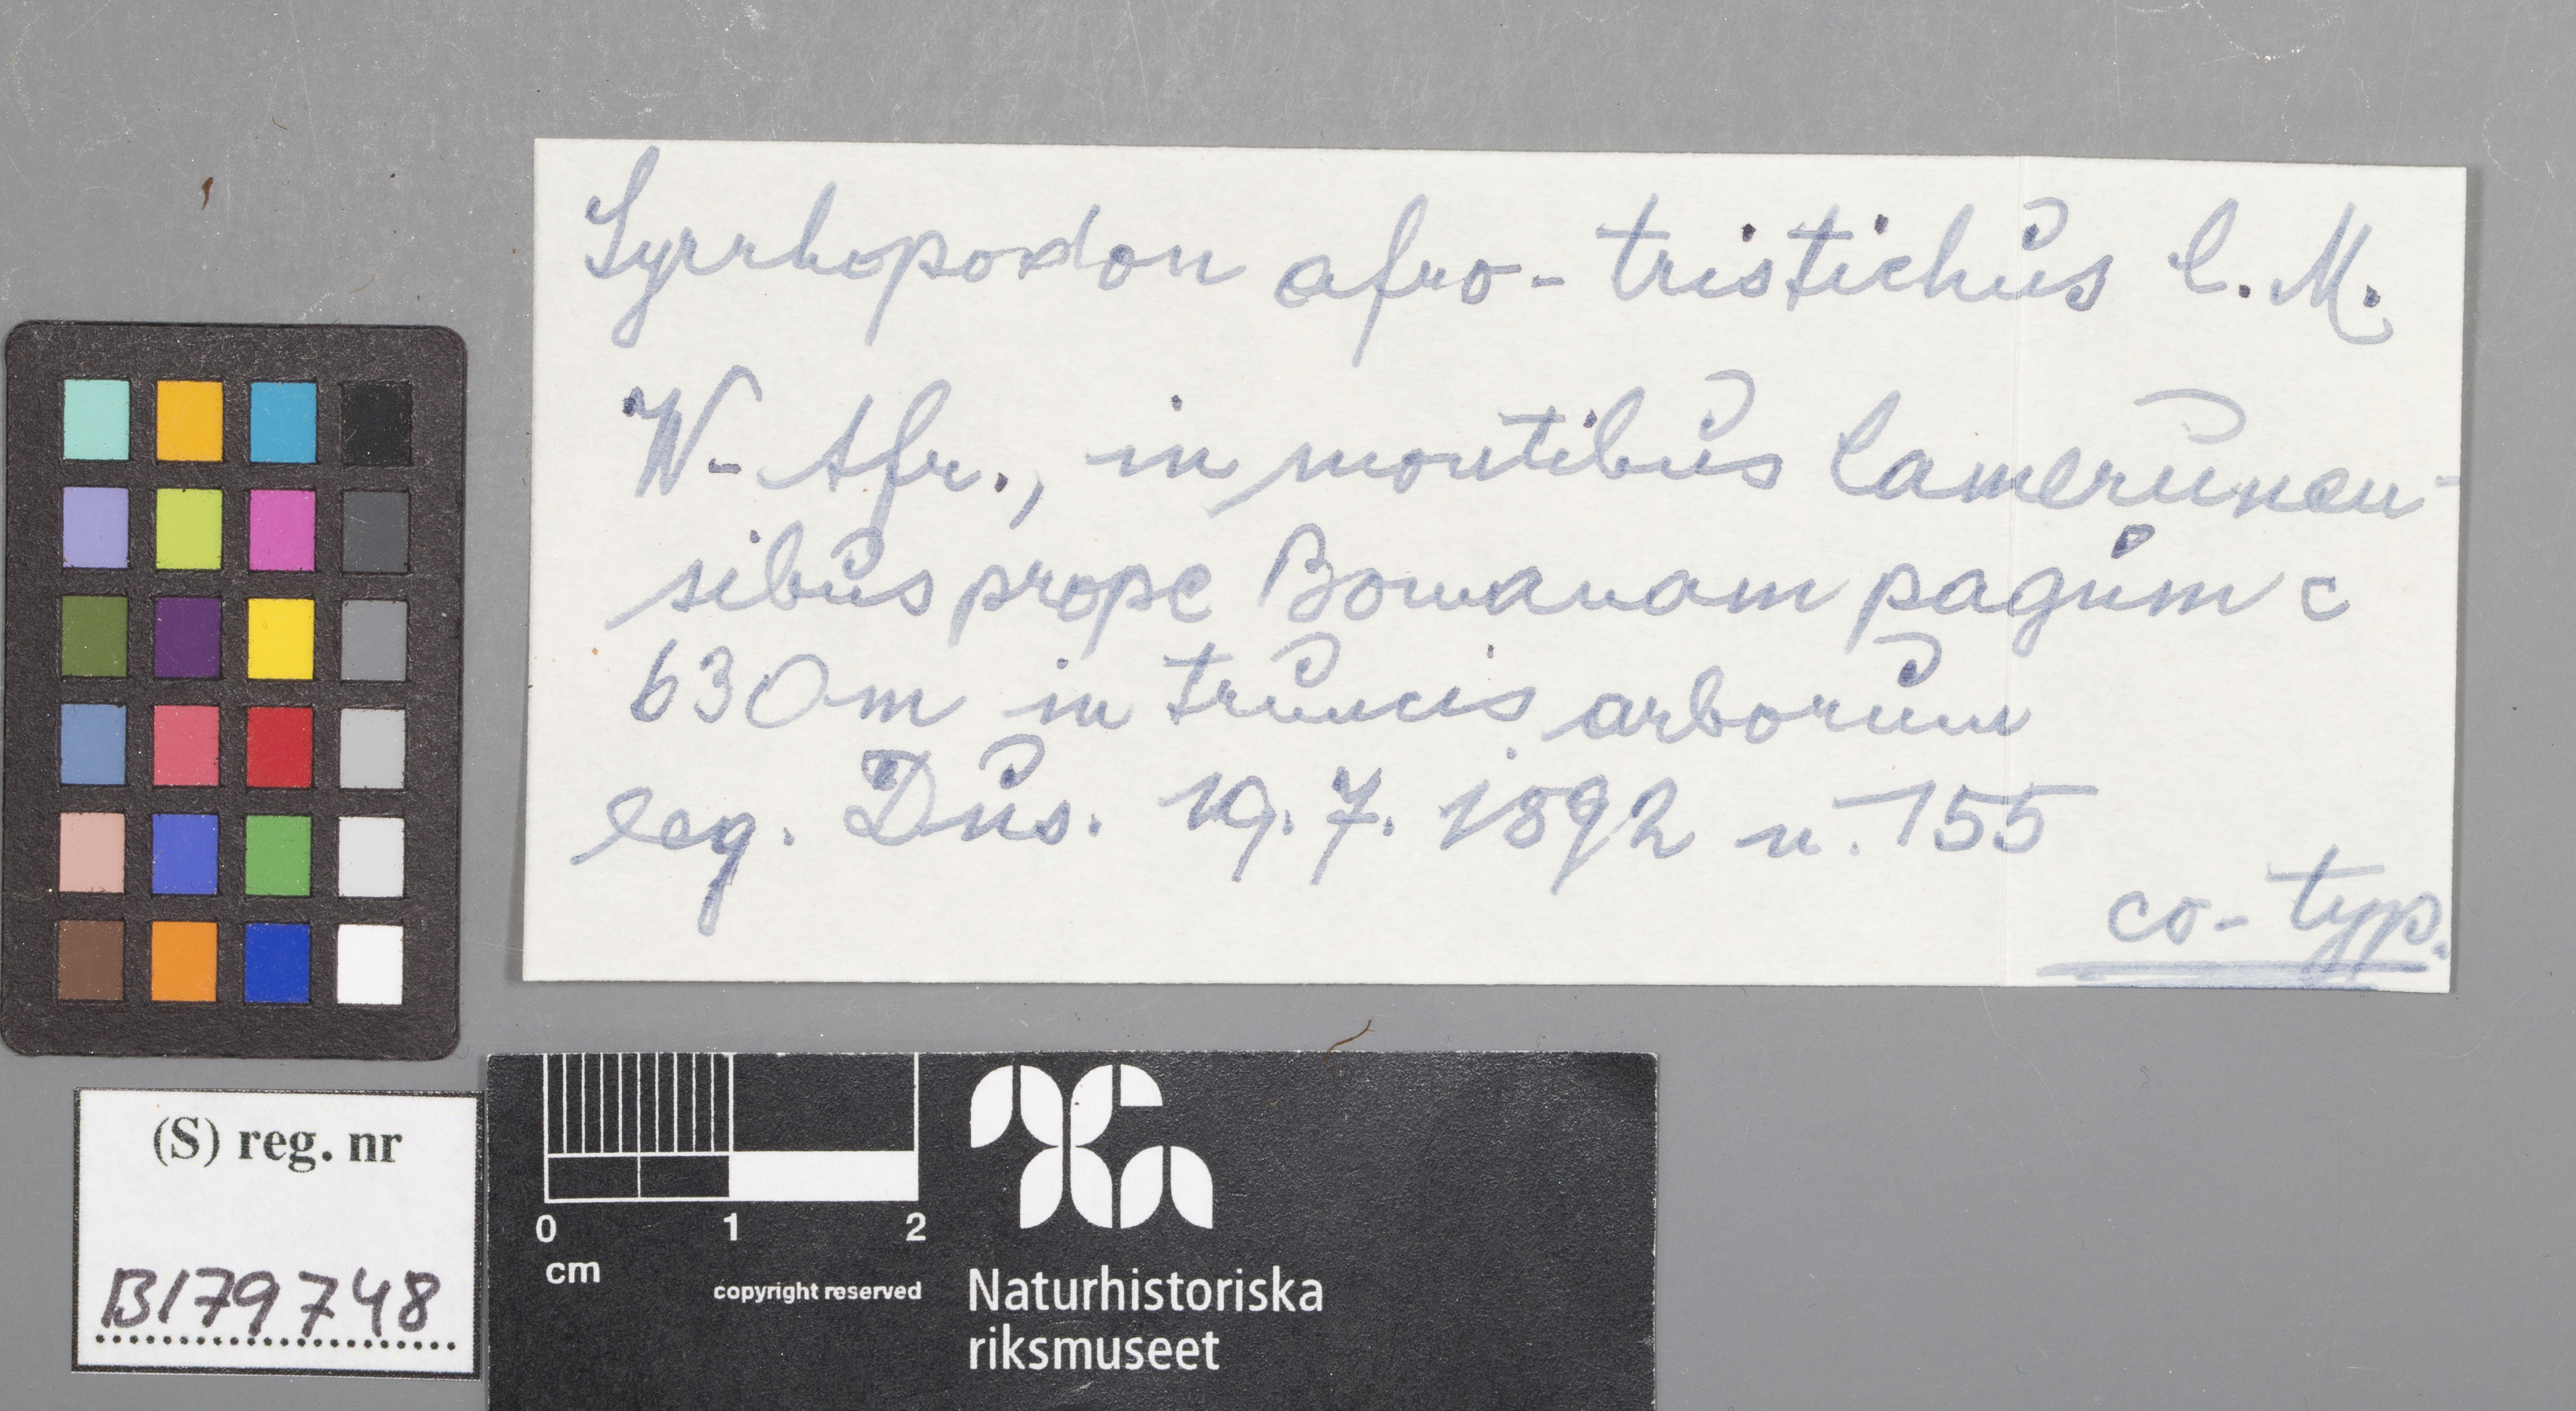 Syrrhopodon afro-tristichus C. M.
W-Afr., in montibus Camerunen-
sibus prope Bomanam pagum c
630m in truncis arborum
leg. Dus. 19.7.1892 n. 155
co-typ.
(S) reg. nr
B179748
0 1 2
cm
copyright reserved
Naturhistoriska
riksmuseet